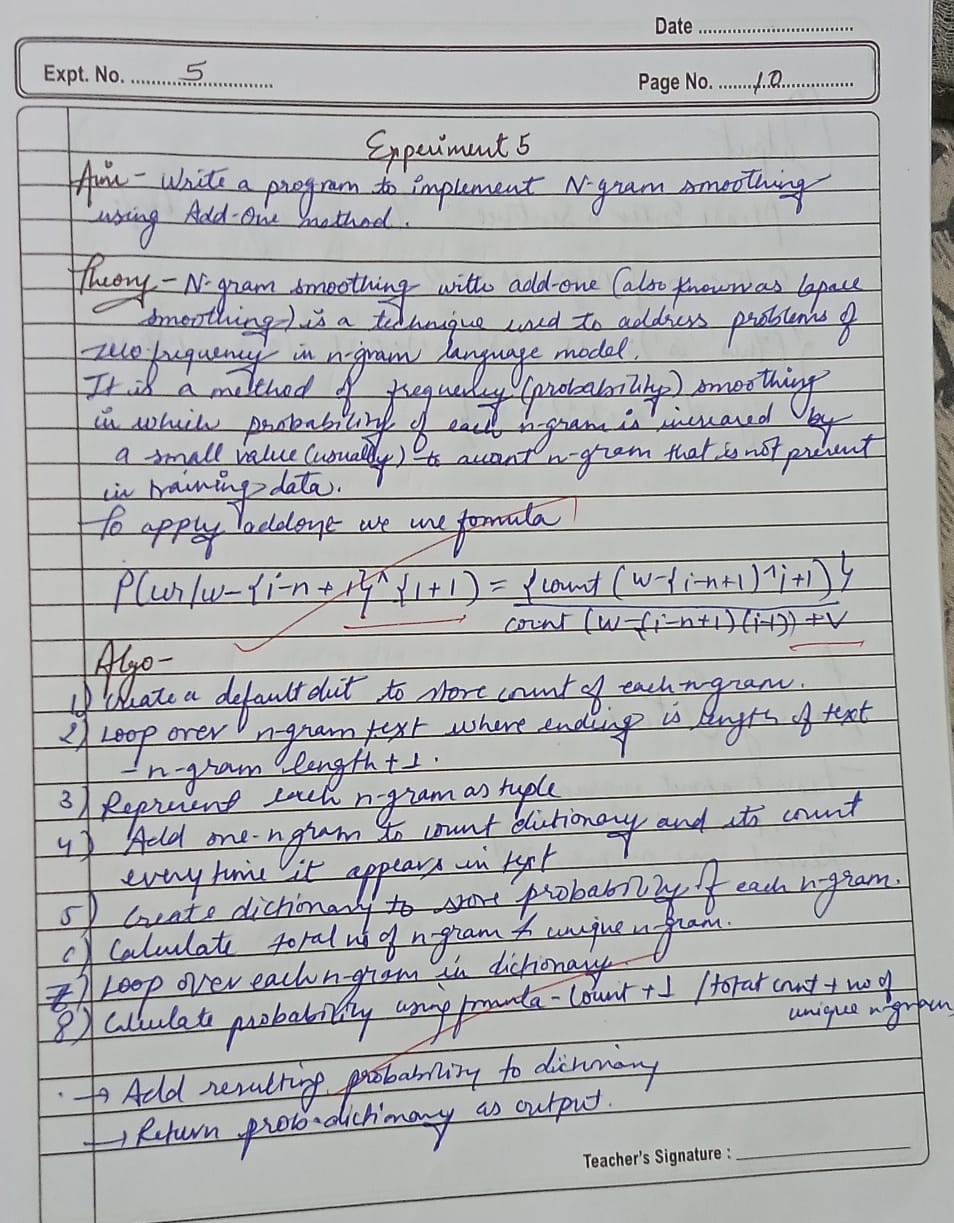 Date
Expt. No. 5
Page No. 10
Experiment 5
Aim - Write a program to implement N-gram smoothing
using Add-One method.
Theory - N-gram smoothing with add-one (also known as lapace
smoothing) is a technique used to address problems of
zero frequency in n-gram language model.
It is a method of frequency (probability) smoothing
in which probability of each n-gram is increased by
a small value (usually) to n-gram that is not present
in training data.
To apply addone we use formula
P(wi/w-{i-n+1}^{1+1) = {count (w-{i-n+1)^i+1)}
count (w-{i-n+1)(i-1)) +V
Algo-
1) Create a default dict to store count of each n-gram.
2) Loop over n-gram text where ending is length of text
- n-gram length + 1.
3) Represent each n-gram as tuple
4) Add one-n gram to count dictionary and its count
every time it appears in text
5) Create dictionary to store probability of each n-gram.
6) Calculate total no of n-gram & unique n-gram.
7) Loop over each n-gram in dictionary
8) Calculate probability using formula - Count + 1 / total count + no of
unique n-gram
→ Add resulting probability to dictionary
→ Return prob-dictionary as output.
Teacher's Signature :